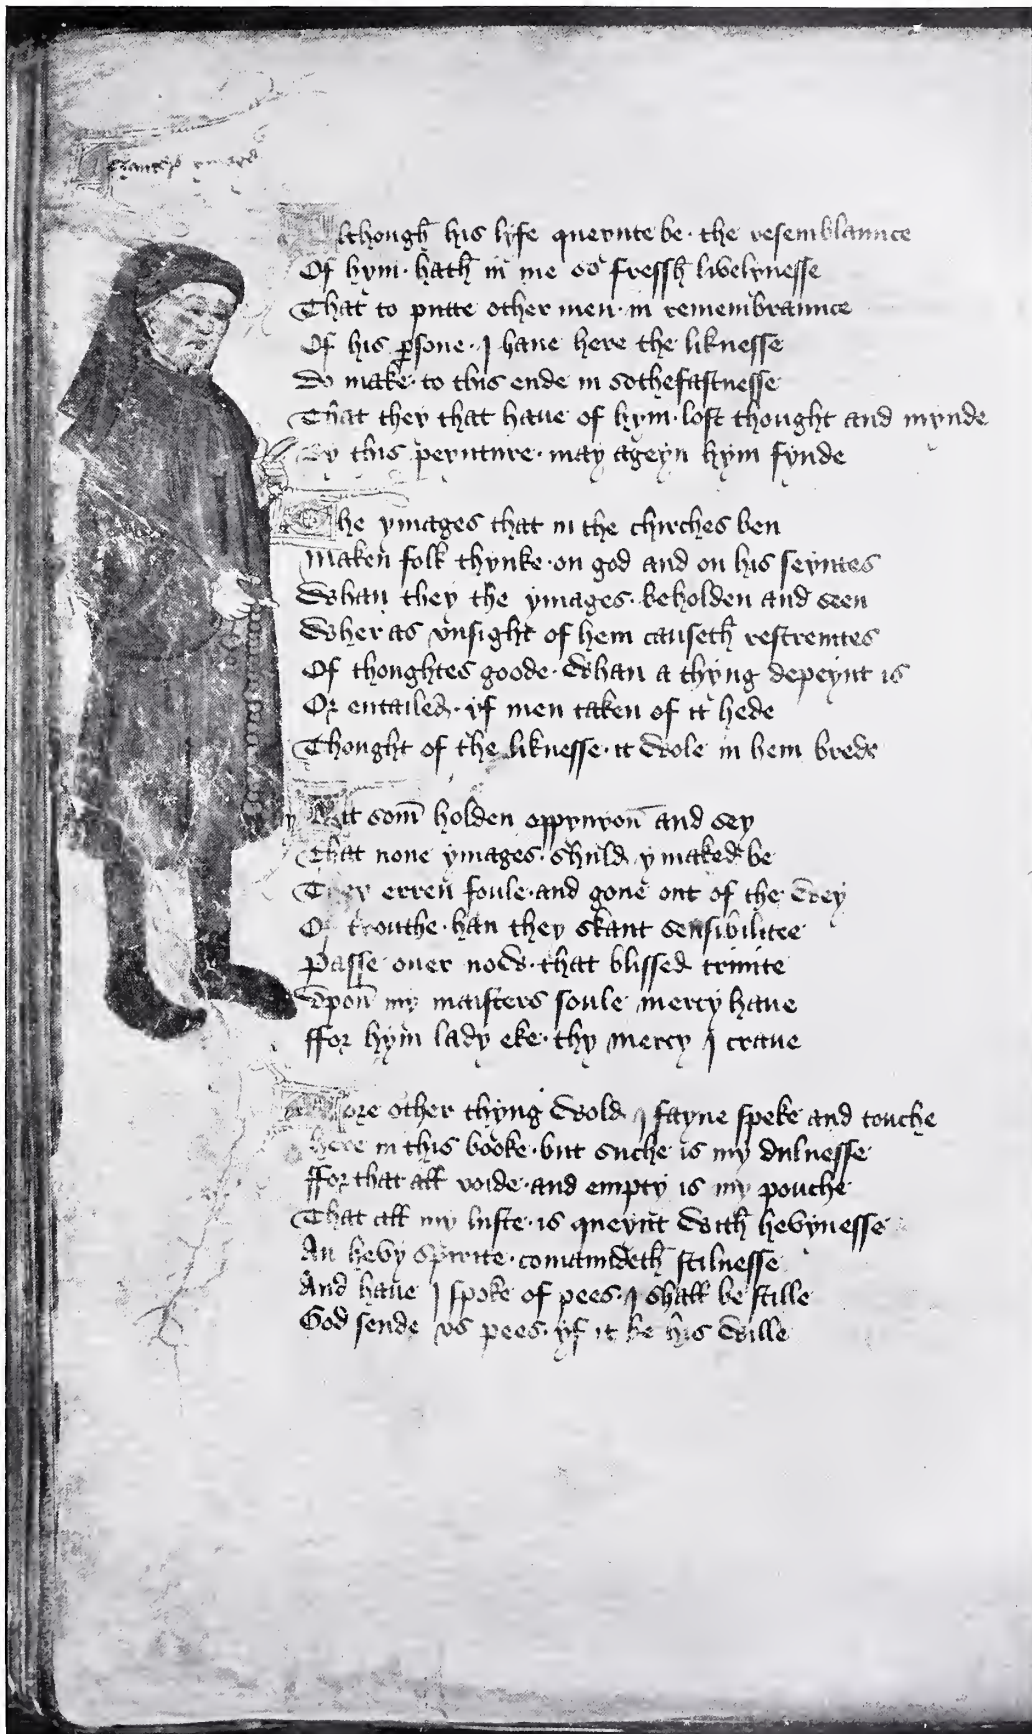 Chaucers ymage
Although his lyfe queynte be · the resemblaunce
Of hym · hath in me so fressh lyvelynesse
That to putte other men · in remembraunce
Of his psone · I haue here the liknesse
Do make · to this ende in sothefastnesse
That they that haue of hym · lost thought and mynde
By this peynture · may ageyn hym fynde
The ymages that in the chirches ben
Maken folk thynke · on god and on his seyntes
Whan they the ymages · beholden and seen
Wher as vnsight of hem causeth restreintes
Of thoughtes goode · Whan a thyng depeynt is
Or entailed · yf men taken of it hede
Thought of the liknesse · it wole in hem brede
Yitt som holden oppynyon and sey
That none ymages · shuld ymaked be
They erren foule · and gone out of the wey
Of trouthe · han they skant sensibilitee
Passe ouer now · that blissed trinite
Vpon my maisters soule mercy haue
ffor hym lady eke · thy mercy I craue
More other thyng wold I fayne speke and touche
Here in this booke · but suche is my dulnesse
ffor that all voide · and empty is my pouche
That all my luste · is queynt with hevynesse
An hevy spirite · comaundeth stilnesse
And haue I spoke of pees · I shall be stille
God sende vs pees · yf it be his wille